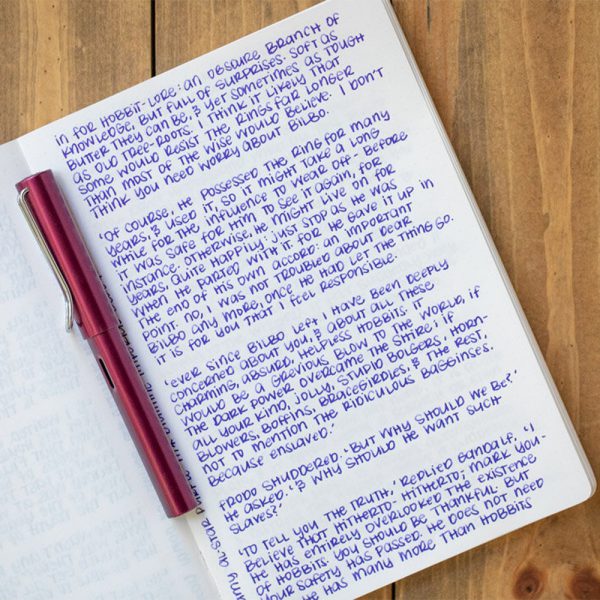 IN FOR HOBBIT-LORE: AN OBSCURE BRANCH OF
KNOWLEDGE, BUT FULL OF SURPRISES. SOFT AS
BUTTER THEY CAN BE, & YET SOMETIMES AS TOUGH
AS OLD TREE-ROOTS. I THINK IT LIKELY THAT
SOME WOULD RESIST THE RINGS FAR LONGER
THAN MOST OF THE WISE WOULD BELIEVE. I DON'T
THINK YOU NEED WORRY ABOUT BILBO.
'OF COURSE, HE POSSESSED THE RING FOR MANY
YEARS, & USED IT, SO IT MIGHT TAKE A LONG
WHILE FOR THE INFLUENCE TO WEAR OFF - BEFORE
IT WAS SAFE FOR HIM TO SEE IT AGAIN, FOR
INSTANCE. OTHERWISE, HE MIGHT LIVE ON FOR
YEARS, QUITE HAPPILY: JUST STOP AS HE WAS
WHEN HE PARTED WITH IT. FOR HE GAVE IT UP IN
THE END OF HIS OWN ACCORD: AN IMPORTANT
POINT. NO, I WAS NOT TROUBLED ABOUT DEAR
BILBO ANY MORE, ONCE HE HAD LET THE THING GO.
IT IS FOR YOU THAT I FEEL RESPONSIBLE.
'EVER SINCE BILBO LEFT I HAVE BEEN DEEPLY
CONCERNED ABOUT YOU, & ABOUT ALL THESE
CHARMING, ABSURD, HELPLESS HOBBITS. IT
WOULD BE A GREVIOUS BLOW TO THE WORLD, IF
THE DARK POWER OVERCAME THE SHIRE; IF
ALL YOUR KIND, JOLLY, STUPID BOLGERS, HORN-
BLOWERS, BOFFINS, BRACEGIRDLES, & THE REST,
NOT TO MENTION THE RIDICULOUS BAGGINSES,
BECAUSE ENSLAVED.'
FRODO SHUDDERED. 'BUT WHY SHOULD WE BE?'
HE ASKED. '& WHY SHOULD HE WANT SUCH
SLAVES?'
'TO TELL YOU THE TRUTH,' REPLIED GANDALF, 'I
BELIEVE THAT HITHERTO- HITHERTO, MARK YOU-
HE HAS ENTIRELY OVERLOOKED THE EXISTENCE
OF HOBBITS. YOU SHOULD BE THANKFUL. BUT
YOUR SAFETY HAS PASSED. HE DOES NOT NEED
HE HAS MANY MORE THAN HOBBITS